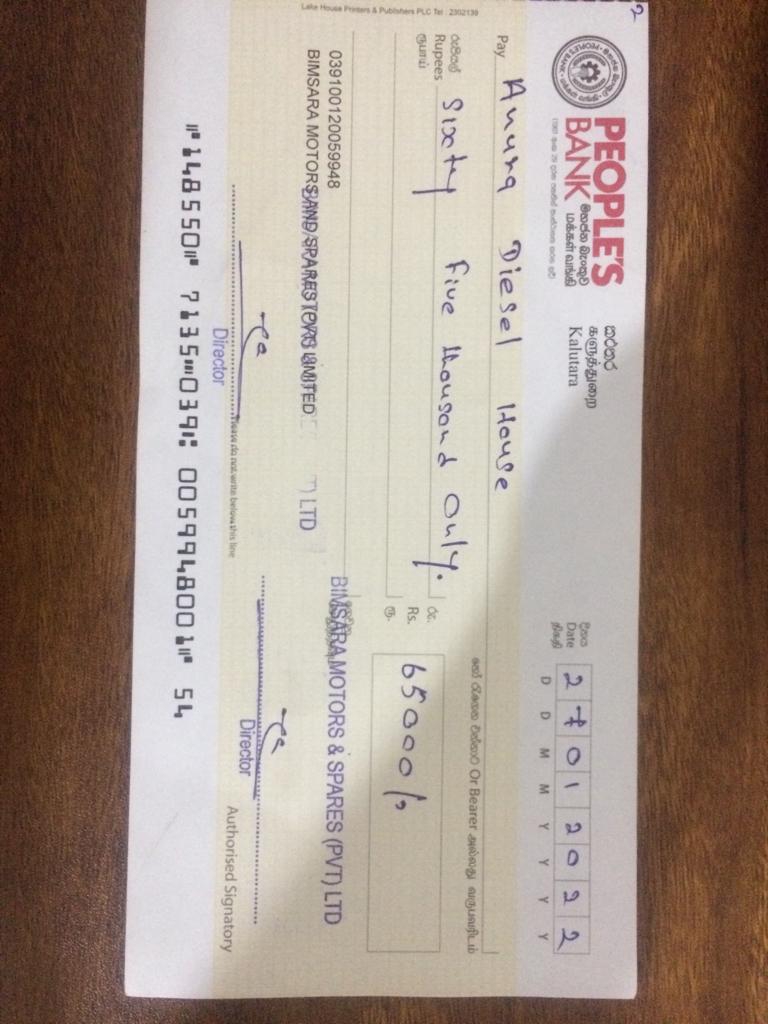 2
PEOPLE'S
BANK මහජන බැංකුව
மக்கள் வங்கி
කළුතර
களுத்துறை
Kalutara
දිනය
Date
திகதி
2 7 0 1 2 0 2 2
D D M M Y Y Y Y
Pay Anura Diesel House
Or Bearer
රුපියල්
Rupees Sixty Five thousand Only.
ரூபாய்
රු.
Rs. 65000/=
ரூ.
039100120059948
BIMSARA MOTORS AND SPARES (PVT) LIMITED
T) LTD
BIMSARA MOTORS & SPARES (PVT) LTD
Director
Director
Please do not write below this line
Authorised Signatory
⑈148550⑈ 7135⑉039⑆ 0059948001⑈ 54
Lake House Printers & Publishers PLC Tel : 2302139